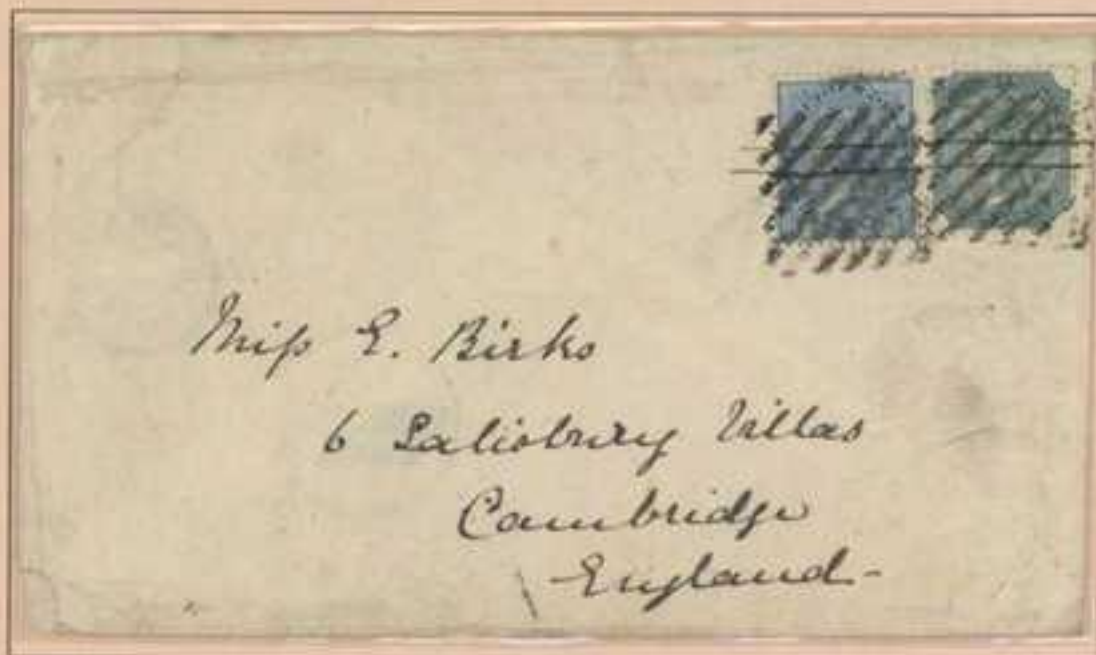 Miss E. Birks
6 Salisbury Villas
Cambridge
England-